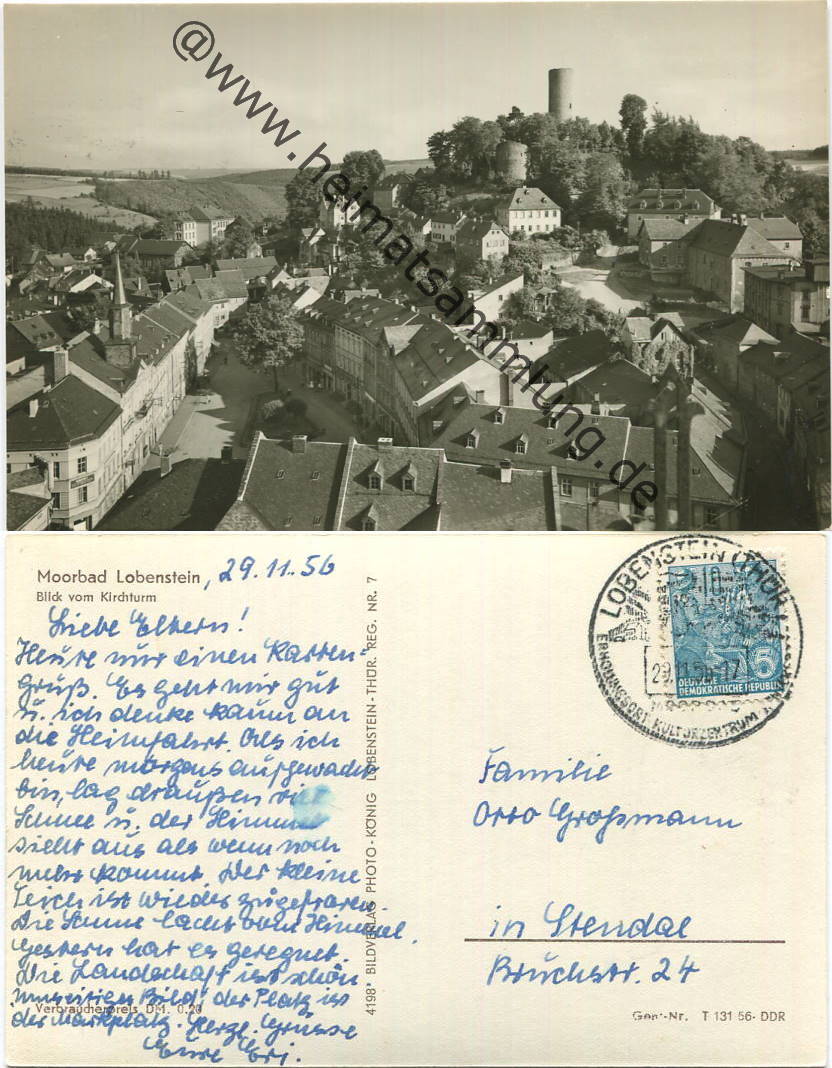 @www.heimatsammlung.de
Moorbad Lobenstein, 29.11.56
Blick vom Kirchturm
Liebe Eltern!
Heute nur einen Karten-
gruß. Es geht mir gut
u. ich denke kaum an
die Heimfahrt. Als ich
heute morgens aufgewacht
bin, lag draußen viel
Schnee u. der Himmel
sieht aus als wenn noch
mehr kommt. Der kleine
Teich ist wieder zugefroren.
Die Sonne lacht vom Himmel.
Gestern hat es geregnet.
Die Landschaft ist schön
umseitiges Bild, der Platz ist
der Marktplatz. Herzl. Grüsse
Eure Eri.
Verbraucherpreis DM. 0.20
4198* BILDVERLAG PHOTO-KÖNIG LOBENSTEIN-THÜR. REG. NR. 7
LOBENSTEIN (THÜR
29.11.56-17
ERHOLUNGSORT KULTURZENTRUM
6
DEUTSCHE
DEMOKRATISCHE REPUBLIK
Familie
Otto Großmann
in Stendal
Bruchstr. 24
Gen.-Nr. T 131 56- DDR